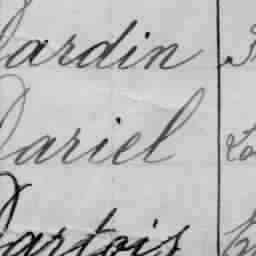 Dardin
Dariel
Dartois